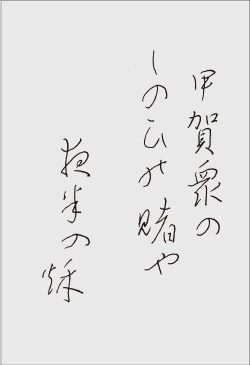 甲賀衆の
しのひの賭や
夜半の秋